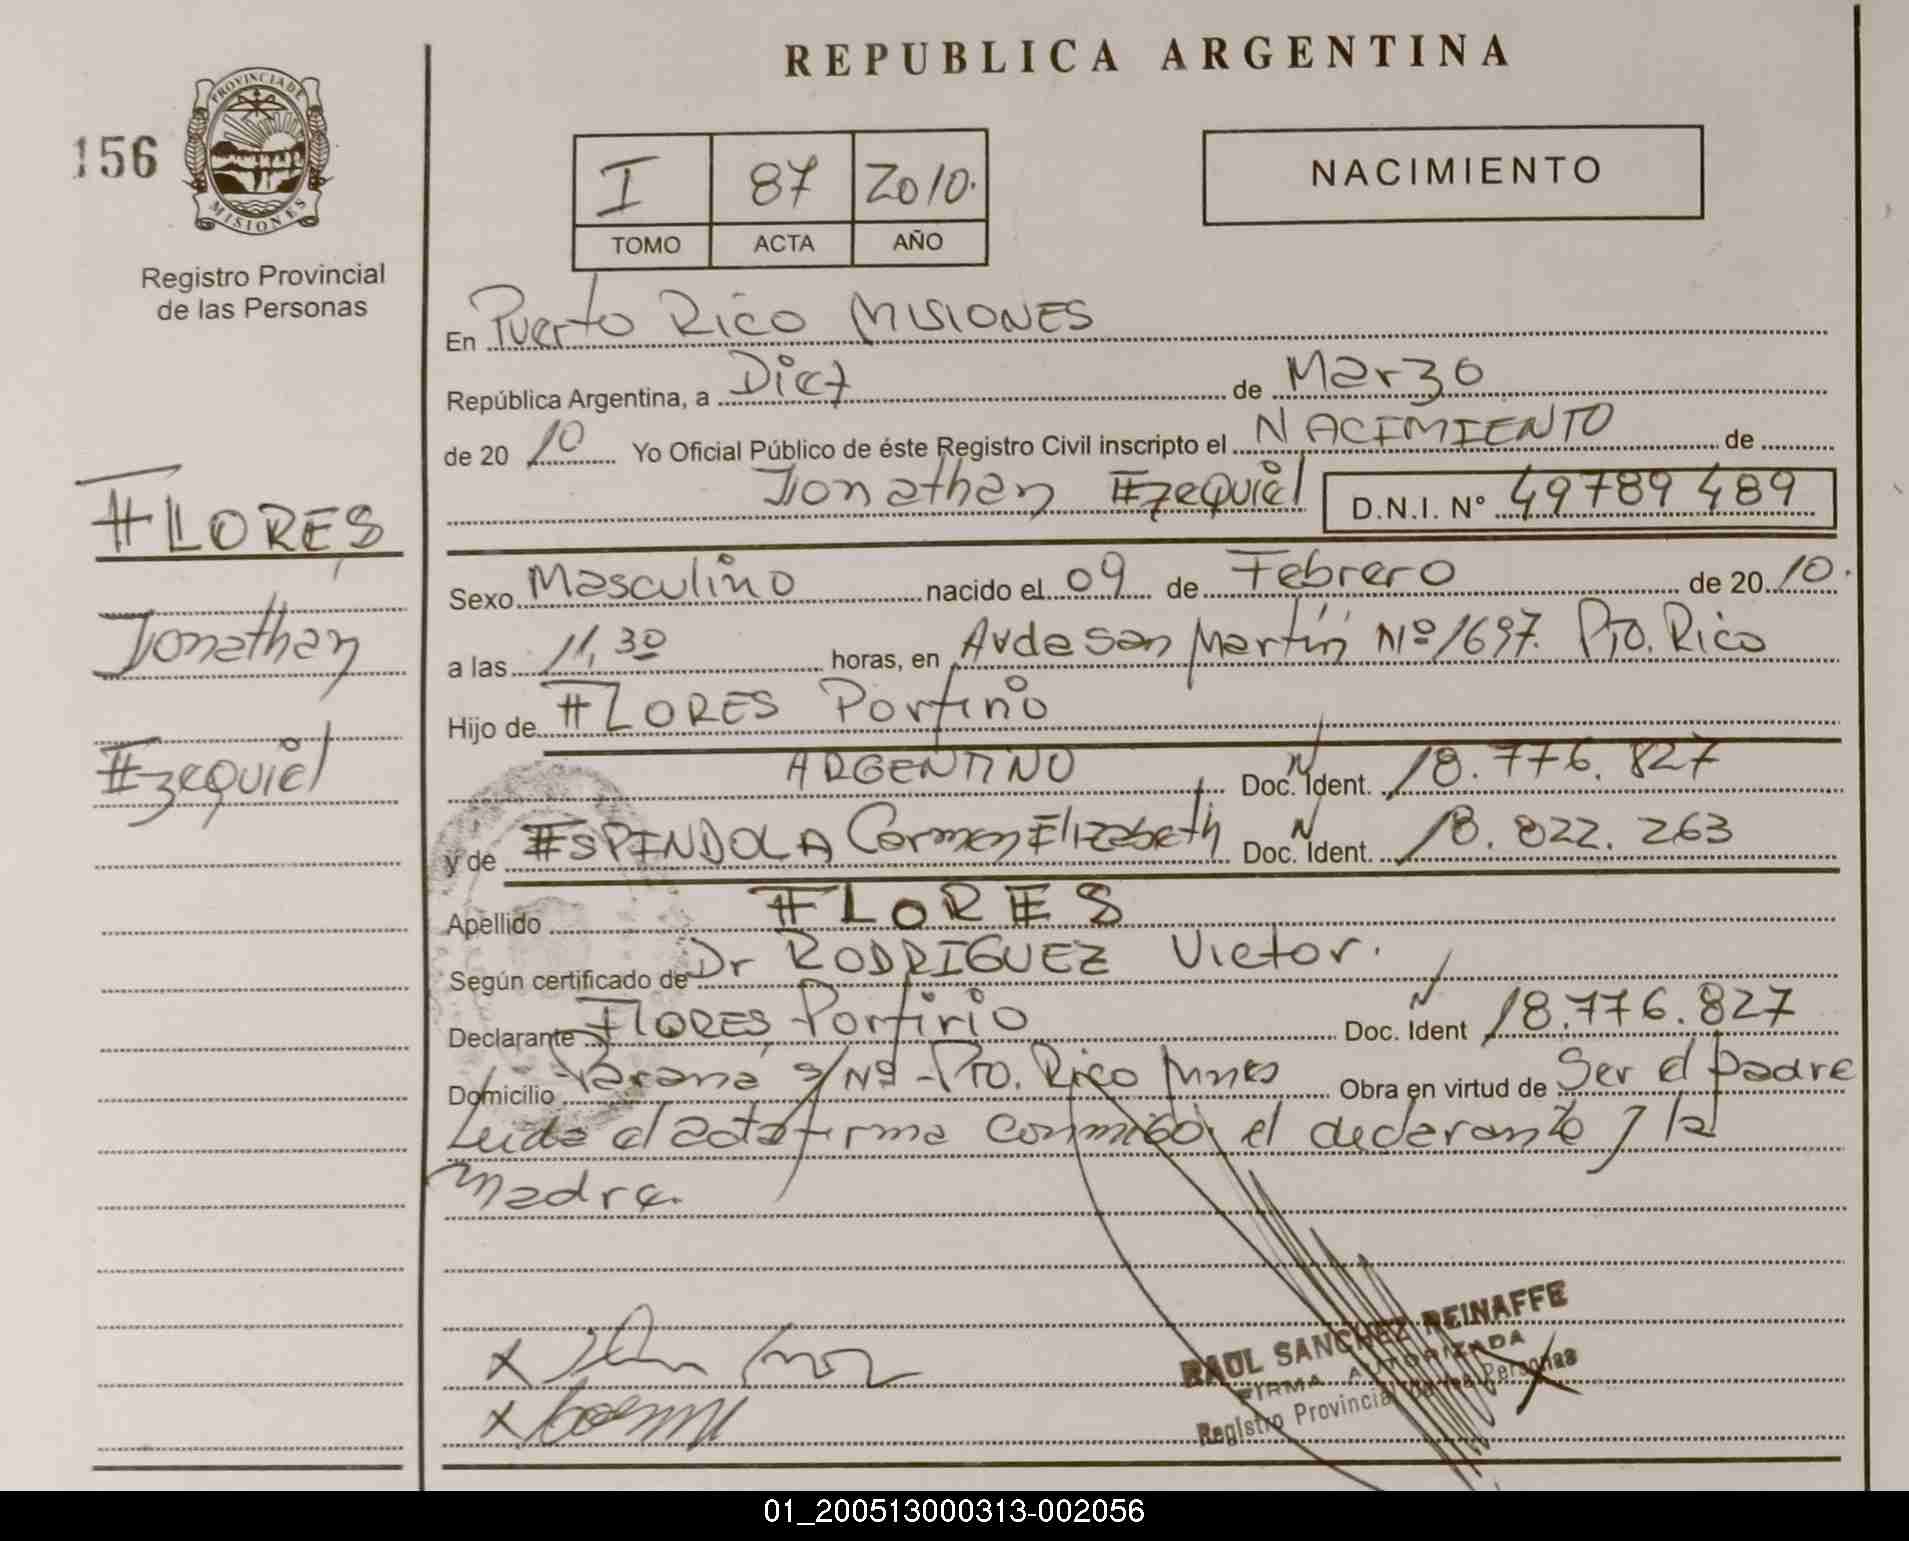 REPUBLICA ARGENTINA
156
PROVINCIA DE
MISIONES
Registro Provincial
de las Personas
I 87 2010.
TOMO ACTA AÑO
NACIMIENTO
En Puerto Rico MISIONES
República Argentina, a Diez de Marzo
de 20 10 Yo Oficial Público de éste Registro Civil inscripto el NACIMIENTO de
Jonathan Ezequiel D.N.I. N° 49789489
FLORES
Jonathan
Ezequiel
Sexo Masculino nacido el 09 de Febrero de 20 10.
a las 11,30 horas, en Avda San Martín Nº1697. Pto. Rico
Hijo de FLORES Porfirio
ARGENTINO Doc. Ident. 18.776.827
y de ESPINDOLA Carmen Elizabeth Doc. Ident. 18.822.263
Apellido FLORES
Según certificado de Dr RODRIGUEZ Victor.
Declarante FLORES, Porfirio Doc. Ident 18.776.827
Domicilio Parana s/Nº - Pto. Rico Mnes Obra en virtud de Ser el padre
Leida el acta firma conmigo el declarante y la
Madre.
x
x
RAUL SANCHEZ REINAFFE
FIRMA AUTORIZADA
Registro Provincial de las Personas
01_200513000313-002056